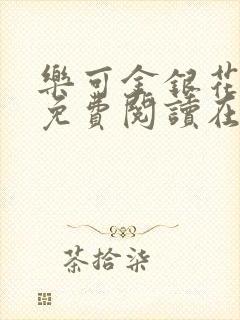 樂可金銀花
免費閱讀在
茶拾柒